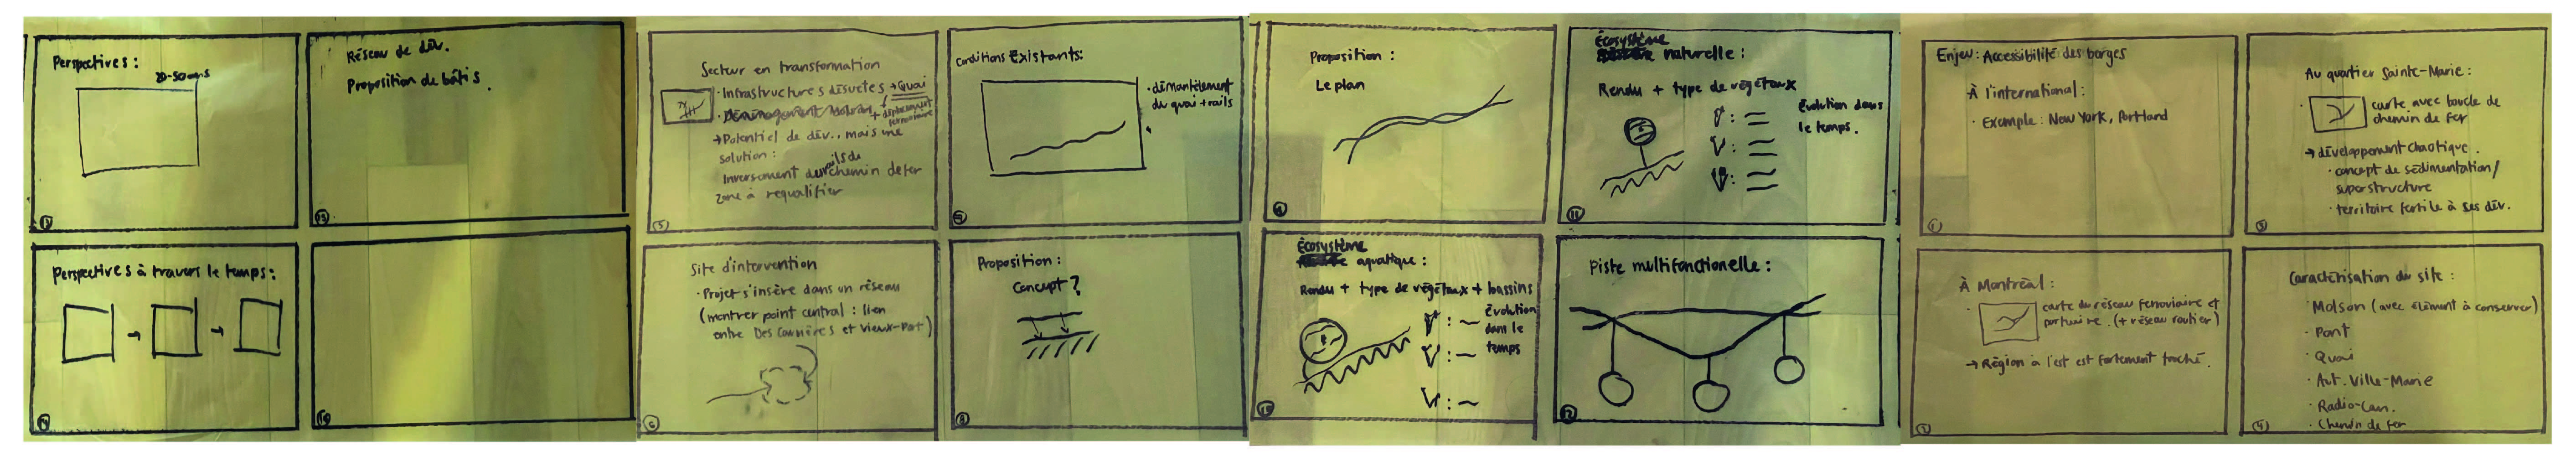 Perspectives :
20-50 ans
13
Réseau de dév.
Proposition de bâtis.
15
Perspectives à travers le temps :
14
16
Secteur en transformation
· Infrastructures désuètes → Quai
+ déplacement
ferroviaire
→ Potentiel de dév., mais une
solution :
Inversement du rails de chemin de fer
zone à requalifier
5
Conditions Existants:
· démantèlement
du quai + rails
7
Site d'intervention
· Projet s'insère dans un réseau
(montrer point central : lien
entre Des Carrières et Vieux-Port)
6
Proposition :
Concept ?
8
Proposition :
Le plan
9
Écosystème
naturelle :
Rendu + type de végétaux
Évolution dans
le temps.
11
Écosystème
aquatique :
Rendu + type de végétaux + bassins
Évolution
dans le
temps
10
Piste multifonctionelle :
12
Enjeu : Accessibilité des berges
À l'international :
· Example : New York, Portland
1
Au quartier Sainte-Marie :
· carte avec boucle de
chemin de fer
→ développement chaotique.
· concept de sédimentation/
superstructure
· territoire fertile à ses dév.
3
À Montréal :
· carte du réseau ferroviaire et
portuaire. (+ réseau routier)
→ Région à l'est est fortement touché.
2
Caractérisation du site :
· Molson (avec élément à conserver)
· Pont
· Quai
· Aut. Ville-Marie
· Radio-Can.
· Chemin de fer
4